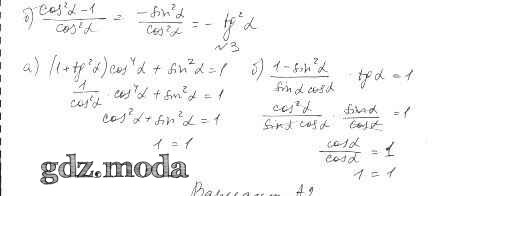 б) cos²α-1 / cos²α = -sin²α / cos²α = - tg²α
√3
а) (1+tg²α)cos⁴α + sin²α = 1
1/cos²α · cos⁴α + sin²α = 1
cos²α + sin²α = 1
1 = 1
б) 1-sin²α / sinα cosα · tgα = 1
cos²α / sinα·cosα · sinα / cosα = 1
cosα / cosα = 1
1 = 1
gdz.moda